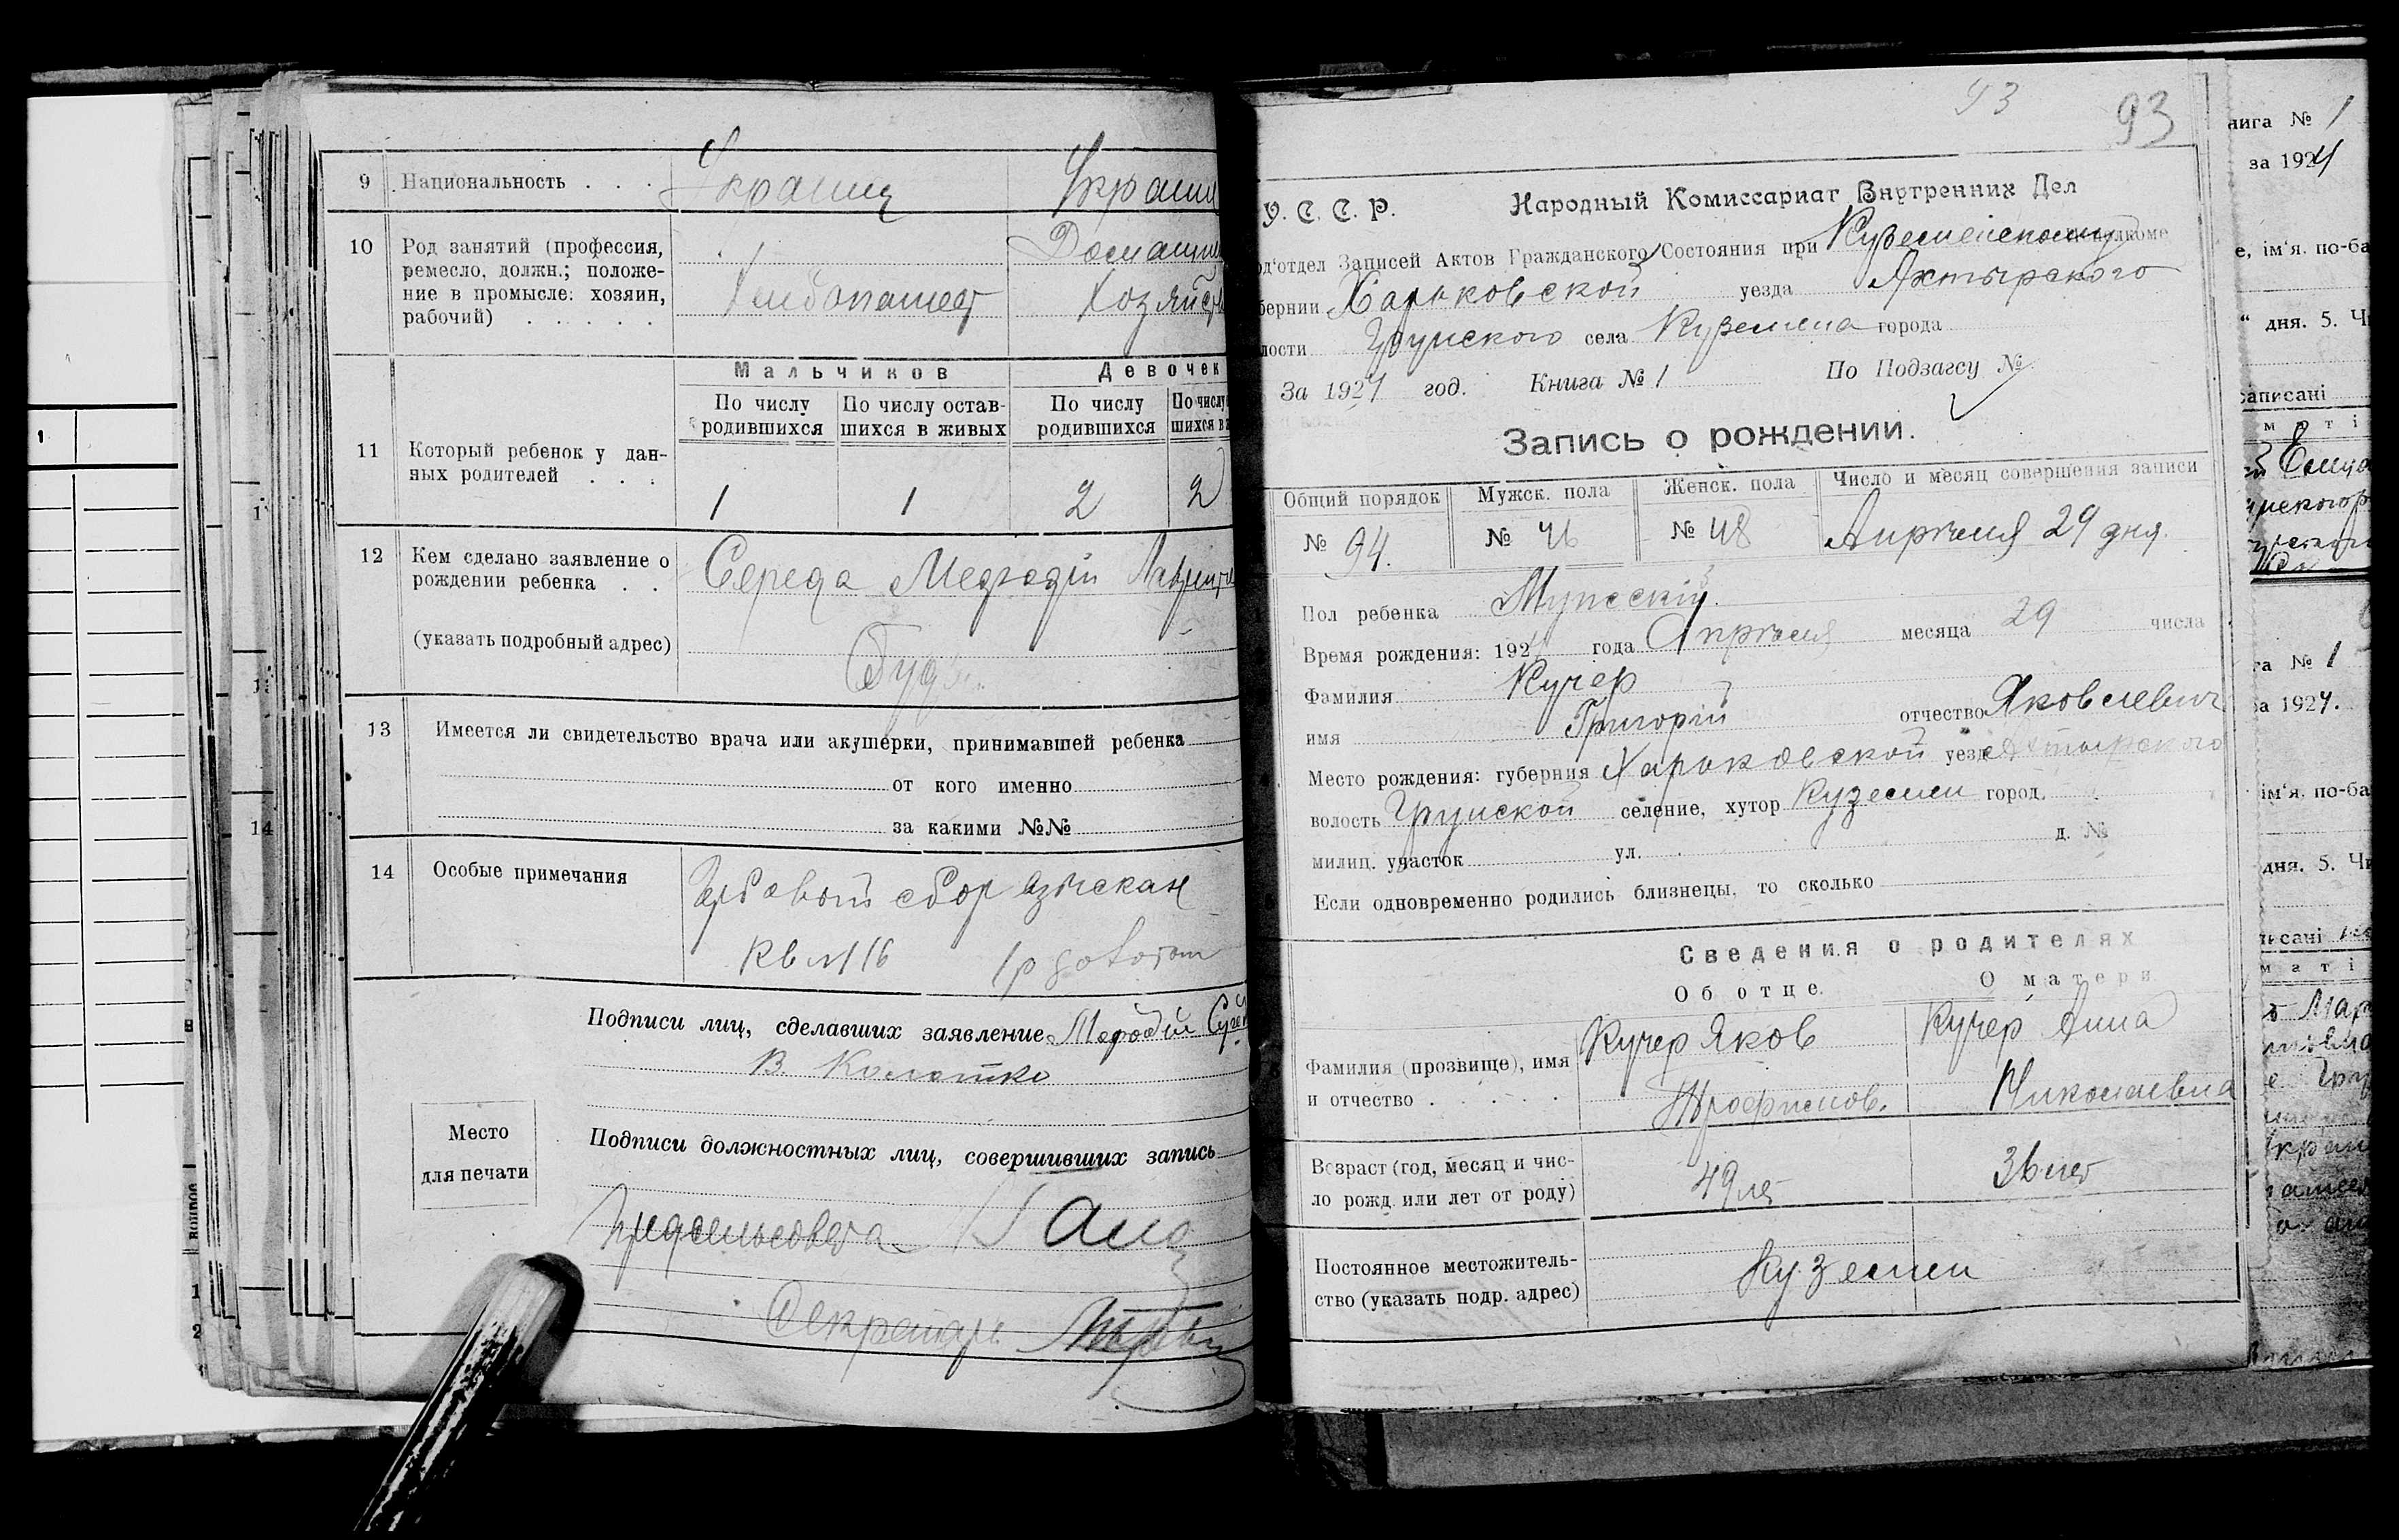 9 Национальность . . .
Украин
Украин
10 Род занятий (профессия,
ремесло, должн.; положе-
ние в промысле: хозяин,
рабочий) . . . . .
Хлебопашест
Домашн
Хозяйств
Мальчиков
Девочек
По числу
родившихся
По числу остав-
шихся в живых
По числу
родившихся
По числу
шихся в
11 Который ребенок у дан-
ных родителей . . .
1 1 2 2
12 Кем сделано заявление о
рождении ребенка . .
(указать подробный адрес)
Середа
13 Имеется ли свидетельство врача или акушерки, принимавшей ребенка
от кого именно
за какими №№
14 Особые примечания
Гербовой сбор взыскан
Кв №116 1р
Подписи лиц, сделавших заявление
В.
Место
для печати
Подписи должностных лиц, совершивших запись
Предсельсовета
Секретарь
93 93
У. С. С. Р. Народный Комиссариат Внутренних Дел
од'отдел Записей Актов Гражданского Состояния при Куземенскому
бернии Харьковской уезда Ахтырского
лости Грунского села Куземена города
За 1924 год. Книга № 1 По Подзагсу №
Запись о рождении.
Общий порядок Мужск. пола Женск. пола Число и месяц совершения записи
№ 94. № 46 № 48 Апреля 29 дня.
Пол ребенка Мужский
Время рождения: 1924 года Апреля месяца 29 числа
Фамилия Кучер
имя Григорій отчество Яковлевич
Место рождения: губерния Харьковской уезд Ахтырского
волость Грунской селение, хутор Куземин город
милиц. участок ул. д. №
Если одновременно родились близнецы, то сколько
Сведения о родителях
Об отце. О матери
Фамилия (прозвище), имя
и отчество . . . . .
Кучер Яков
Трофимов.
Кучер Анна
Николаевна
Возраст (год, месяц и чис-
ло рожд. или лет от роду)
49 ле
36 лет
Постоянное местожитель-
ство (указать подр. адрес)
Куземин
нига № 1
за 1924
е, ім'я. по-ба
" дня. 5. Чи
записані
м а т і
га № 1
за 1924.
ім'я. по-ба
дня. 5. Чи
писані
м а т і